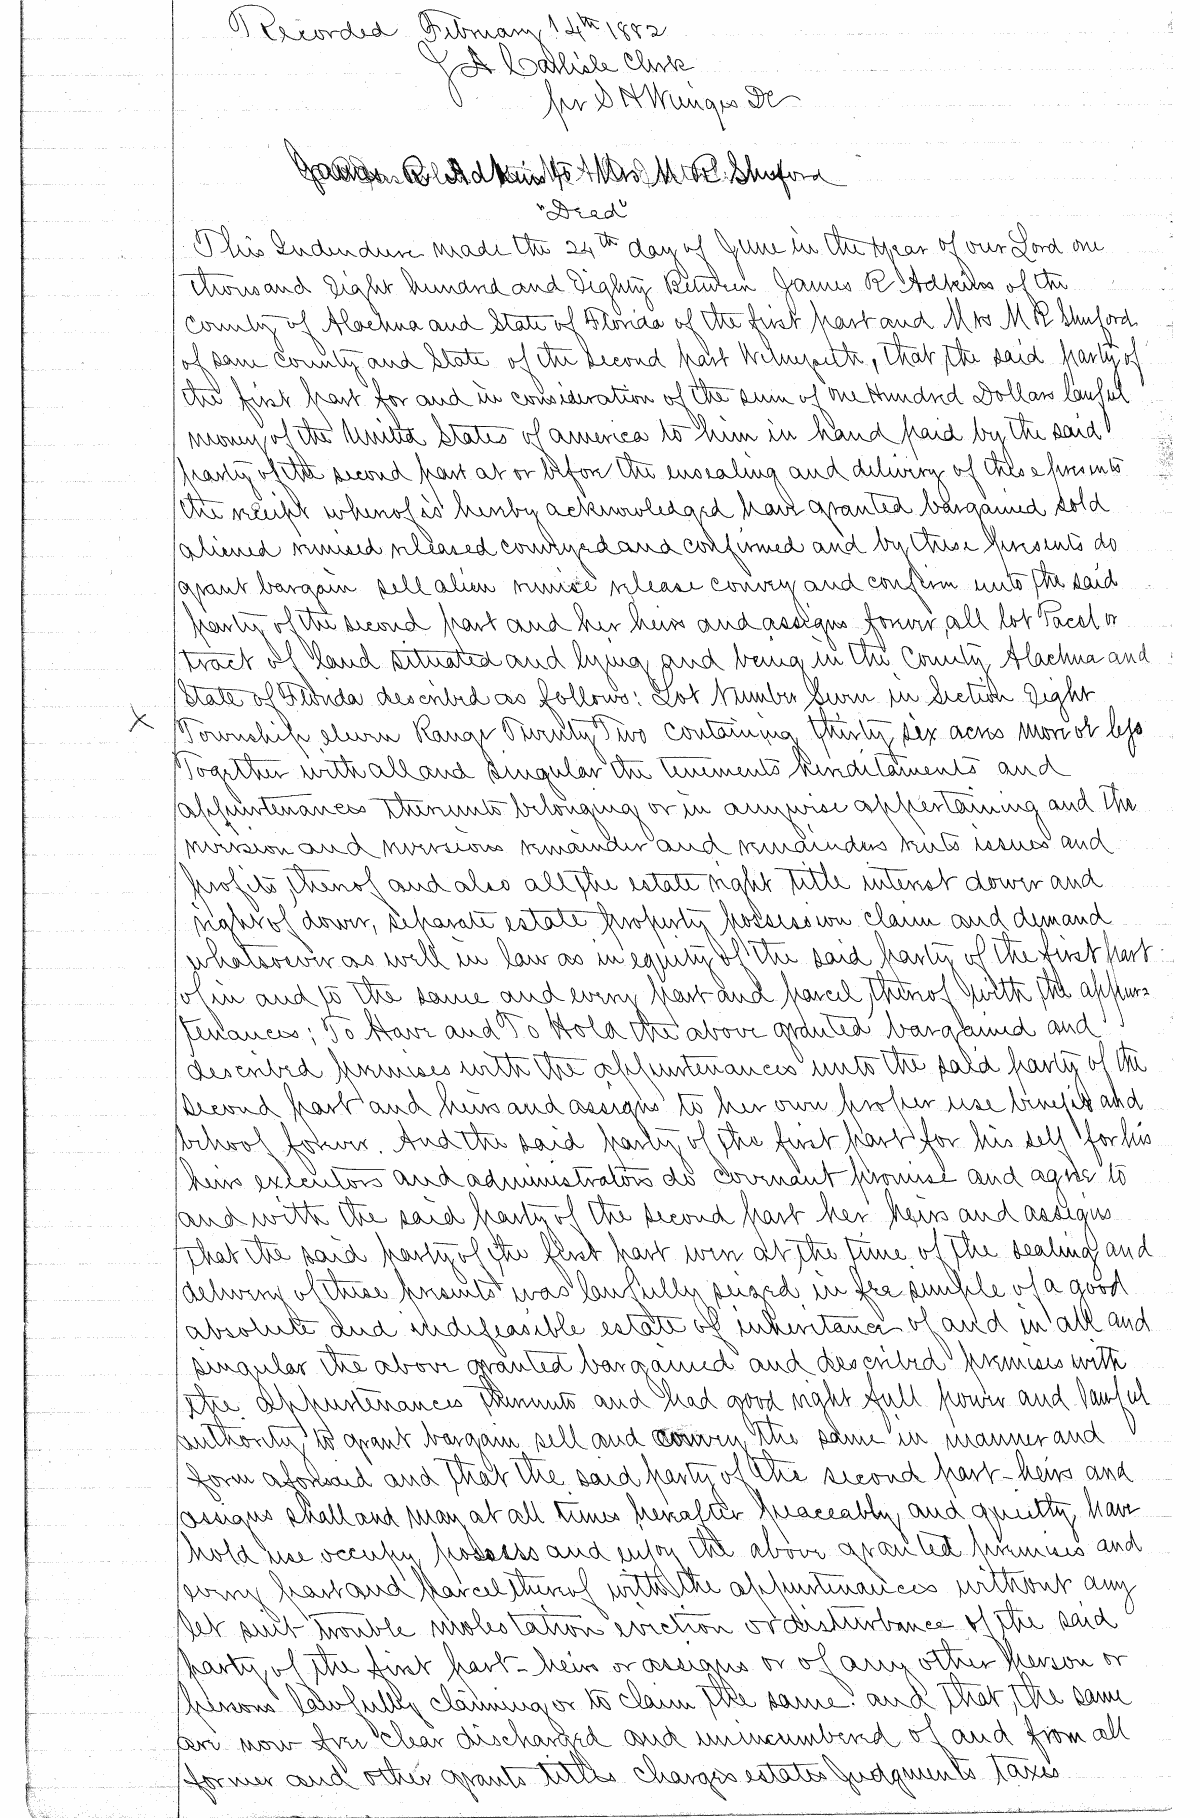 Recorded February 14th 1882
J A Carlisle Clerk
per S H Wienges DC
James R Adkins to Mrs M R Shuford
"Deed"
This Indenture made the 24th day of June in the year of our Lord one
thousand Eight hundred and Eighty Between James R Adkins of the
County of Alachua and State of Florida of the first part and Mrs M R Shuford
of same County and State of the second part Witnesseth, that the said party of
the first part for and in consideration of the sum of One Hundred Dollars lawful
money of the United States of america to him in hand paid by the said
party of the second part at or before the ensealing and delivery of these presents
the receipt whereof is hereby acknowledged have granted bargained sold
aliened remised released conveyed and confirmed and by these presents do
grant bargain sell alien remise release convey and confirm unto the said
party of the second part and her heirs and assigns forever, all lot Pacel or
tract of land situated and lying and being in the County Alachua and
State of Florida described as follows: Lot Number Seven in Section Eight
X Township eleven Range Twenty Two containing thirty six acres more or less
Together with all and singular the tenements hereditaments and
appurtenances thereunto belonging or in anywise appertaining and the
reversion and reversions remainder and remainders rents issues and
profits thereof and also all the estate right title interest dower and
right of dower, separate estate property possession claim and demand
whatsoever as well in law as in equity of the said party of the first part
of in and to the same and every part and parcel thereof with the appur=
tenances; To Have and To Hold the above granted bargained and
described premises with the appurtenances unto the said party of the
second part and heirs and assigns to her own proper use benefit and
behoof forever. And the said party of the first part for his self for his
heirs executors and administrators do covenant promise and agree to
and with the said party of the second part her heirs and assigns
that the said party of the first part were at the time of the sealing and
delivery of these presents was lawfully seized in fee simple of a good
absolute and indefeasible estate of inheritance of and in all and
singular the above granted bargained and described premises with
the appurtenances thereunto and had good right full power and lawful
authority to grant bargain sell and convey the same in manner and
form aforesaid and that the said party of the second part - heirs and
assigns shall and may at all times hereafter peaceably and quietly have
hold use occupy possess and enjoy the above granted premises and
every part and parcel thereof with the appurtenances without any
let suit trouble molestation eviction or disturbance of the said
party of the first part - heirs or assigns or of any other person or
persons lawfully claiming or to claim the same and that the same
are now free clear discharged and unincumbered of and from all
former and other grants titles charges estates Judgments taxes